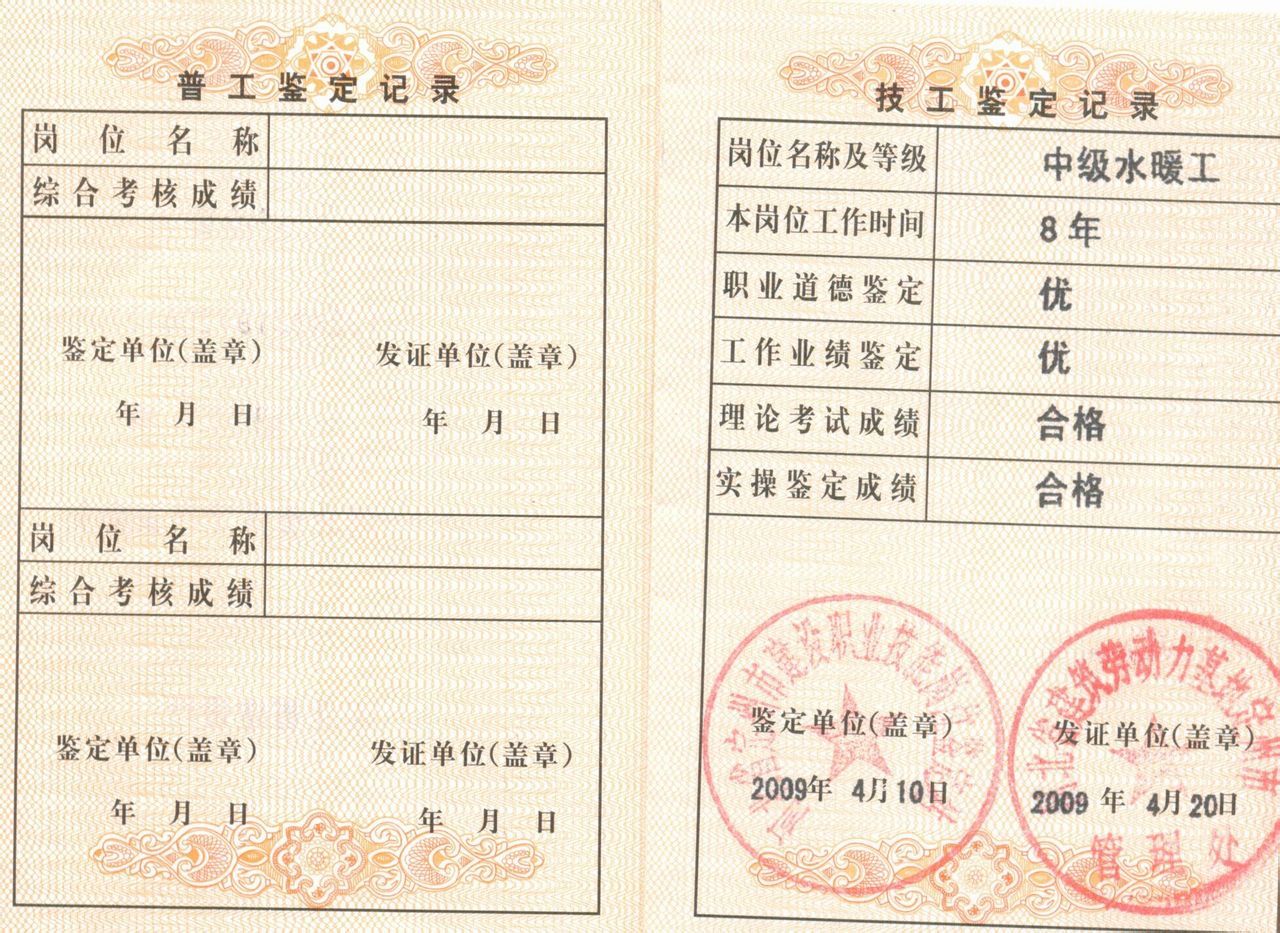 普工鉴定记录
岗位名称
综合考核成绩
鉴定单位(盖章) 发证单位(盖章)
年 月 日 年 月 日
岗位名称
综合考核成绩
鉴定单位(盖章) 发证单位(盖章)
年 月 日 年 月 日
技工鉴定记录
岗位名称及等级 中级水暖工
本岗位工作时间 8年
职业道德鉴定 优
工作业绩鉴定 优
理论考试成绩 合格
实操鉴定成绩 合格
市建设职业技能岗
建筑劳动力基地
管理处
鉴定单位(盖章) 发证单位(盖章)
2009年 4月10日 2009年 4月20日